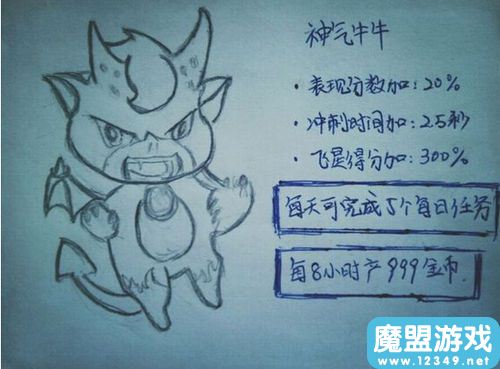 神气牛牛
·表现分数加:20%
·冲刺时间加:2.5秒
·飞星得分加:300%
每天可完成5个每日任务
每8小时产999金币.
魔盟游戏
www.12349.net